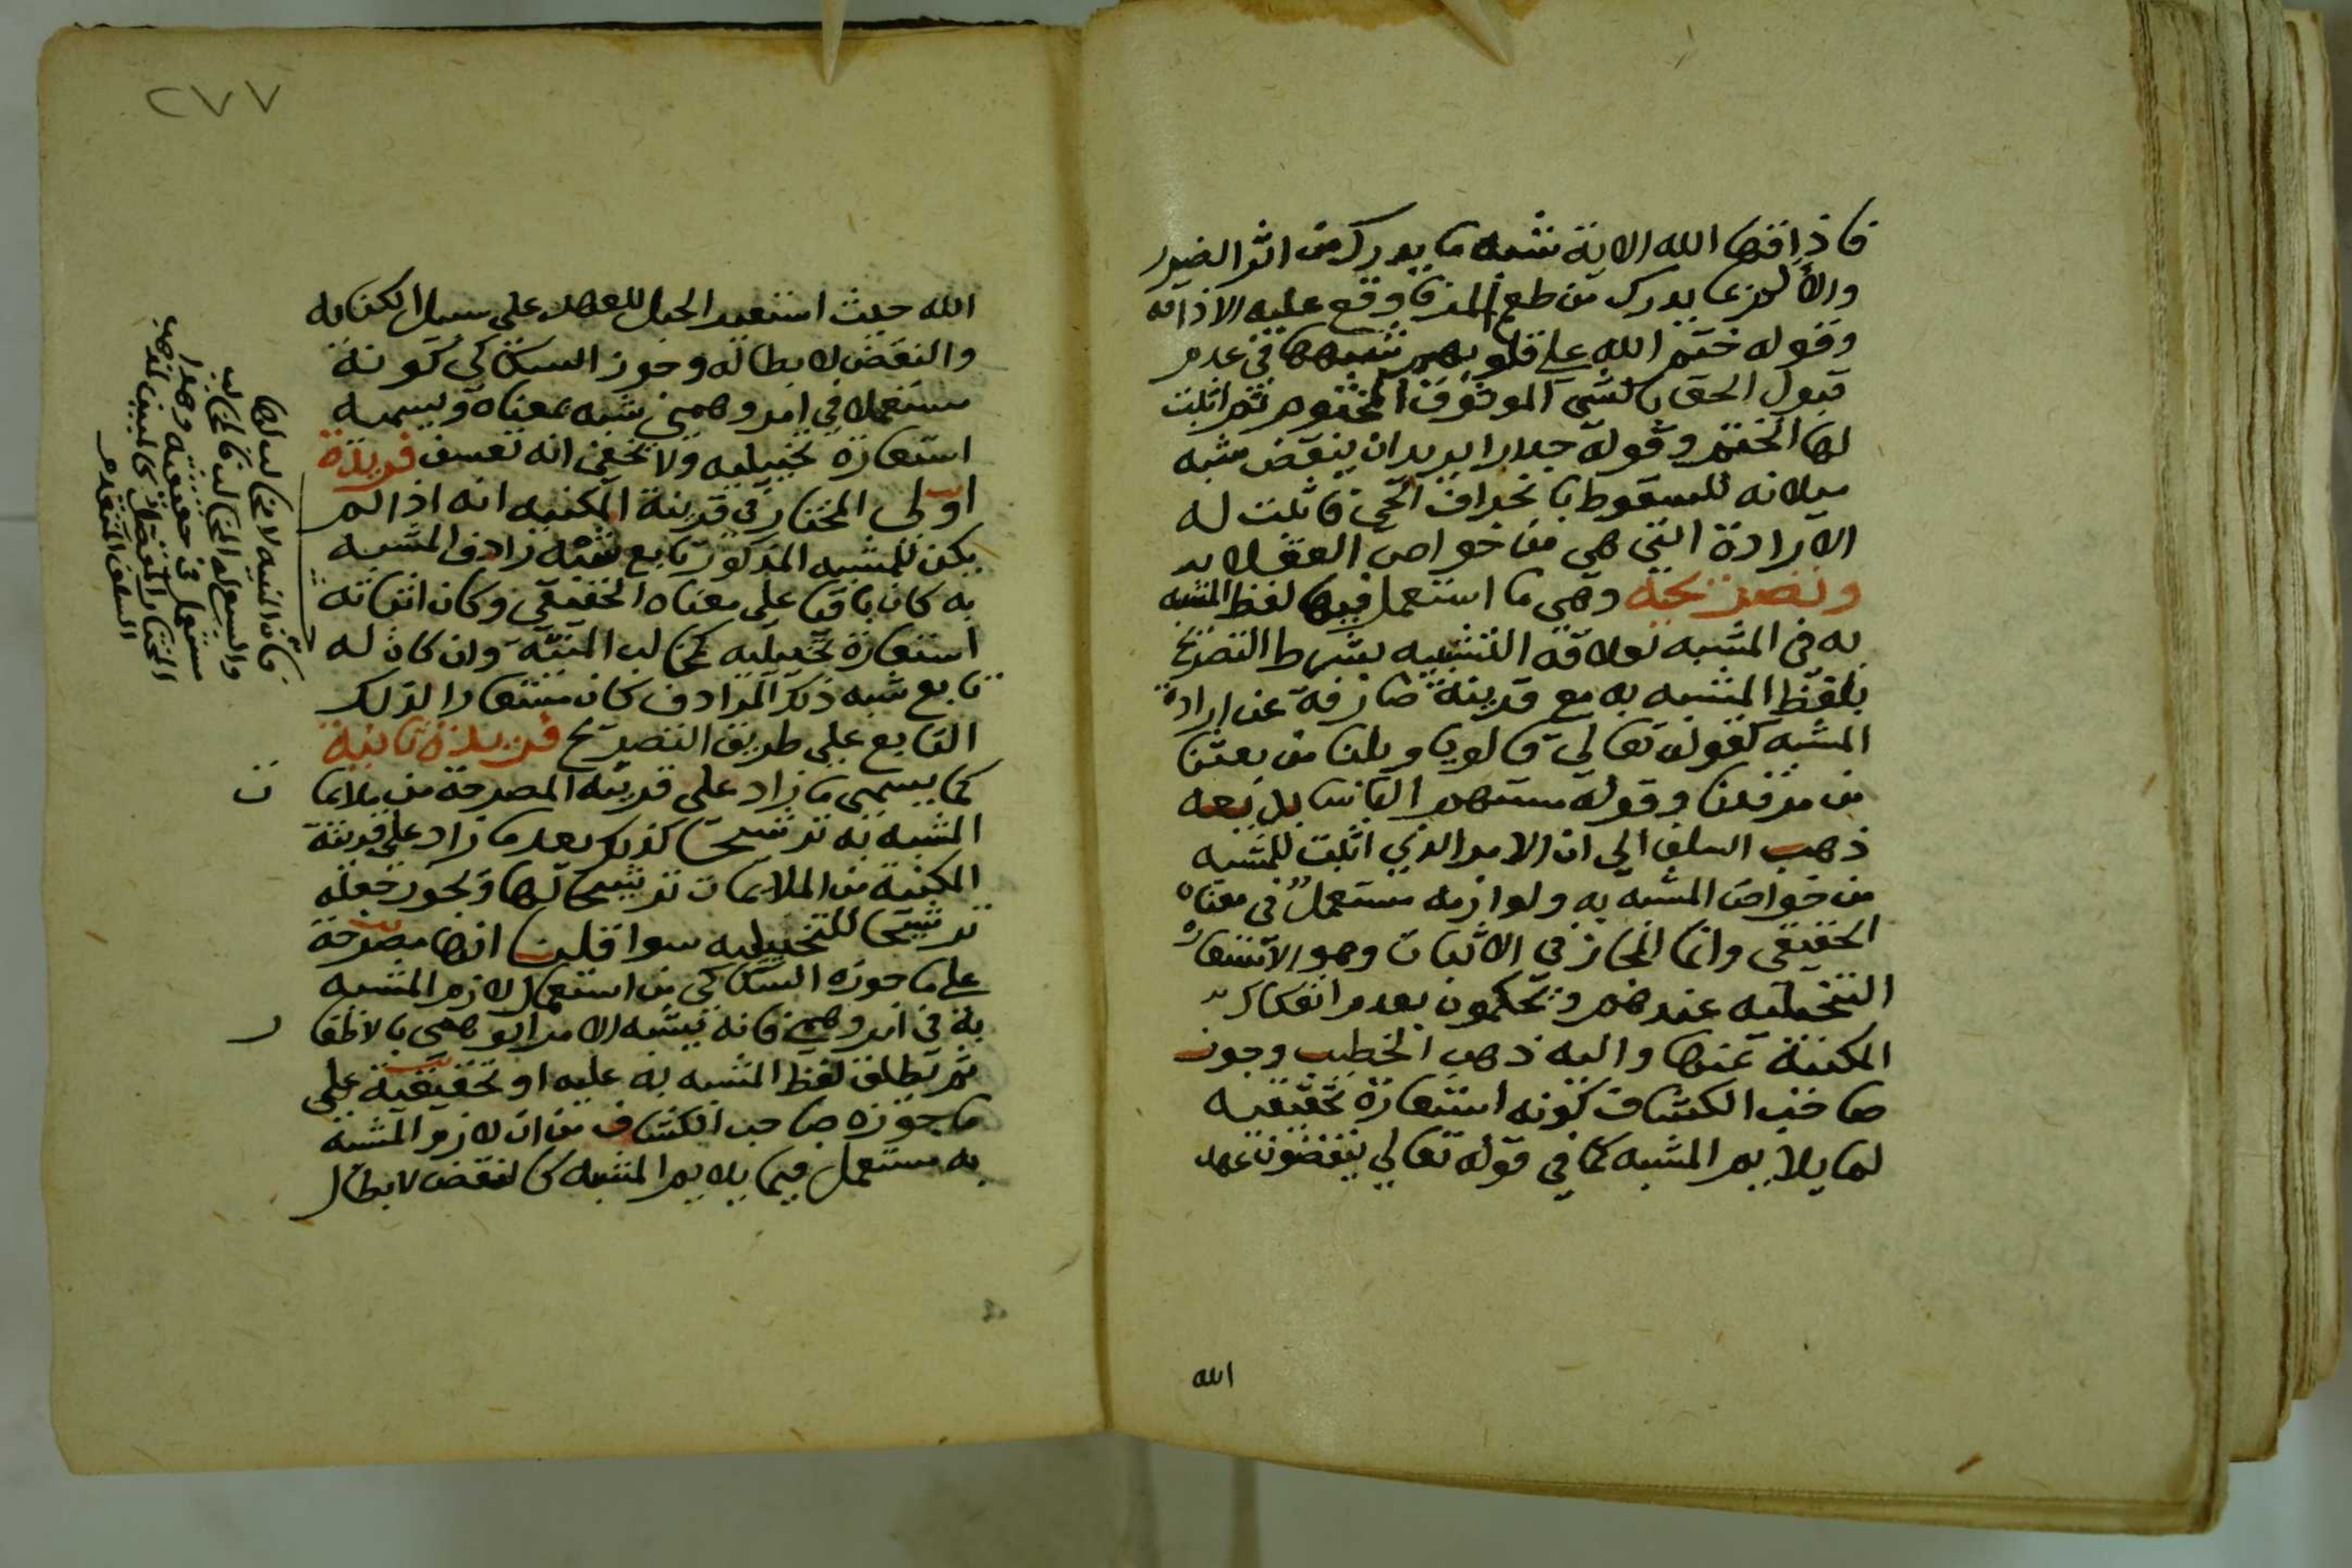 فاذاقها الله الاية شبه ما يدرك من اثر الضرر
والالم بما يدرك من طعم المر فاوقع عليه الاذاقه
وقوله ختم الله على قلوبهم شبهها في عدم
قبول الحق بالشي الموثوق المختوم ثم اثبت
لها الختم وقوله جدارا يريد ان ينقض شبه
ميلانه للسقوط بانحراف الحي فاثبت له
الارادة التي هي من خواص العقلا
وتصريحيه وهي ما استعمل فيها لفظ المشبه
به في المشبه لعلاقة التشبيه بشرط التصريح
بلفظ المشبه به مع قرينة صارفة عن ارادة
المشبه كقوله تعالى قالوا يا ويلنا من بعثنا
من مرقدنا وقوله مستهم الباسا
ذهب السلف الي ان الامر الذي اثبت للمشبه
من خواص المشبه به ولوازمه مستعمل في معناه
الحقيقي وانما المجاز في الاثبات وهو الاستعاره
التخيليه عندهم ويحكمون بعدم انفكاك
المكنية عنها واليه ذهب الخطيب وجوز
صاحب الكشاف كونه استعارة تحقيقيه
لما يلايم المشبه كما في قوله تعالي ينقضون عهد
الله
٢٧٧
الله حيث استعير الحبل للعهد على سبيل الكنايه
والنقض لابطاله وجوز السكاكي كونه
مستعملا في امر وهمي شبه بمعناه ويسميه
استعارة تخييليه ولا يخفي انه تعسف فريدة
اولى المختار في قرينة المكنيه انه اذا لم
يكن للمشبه المذكور تابع شبه رادف المشبه
به كان باقيا على معناه الحقيقي وكان اثباته
استعارة تخييليه كمخالب المنية وان كان له
تابع شبه ذكر المرادف كان مستعارا لذلك
التابع على طريق التصريح فريدة ثانية
كما يسمى ما زاد على قرينة المصرحة من ملايما
ت
المشبه به ترشيحا كذلك يعد ما زاد على قرينة
المكنية من الملايمات ترشيحا لها ويجوز جعله
ترشيحا للتخييليه سوا قلنا انها مصرحة
على ما جوزه السكاكي من استعمال لازم المشبه
به في امر وهمي فانه يشبه الامر الوهمي بالاظفا
ر
ثم يطلق لفظ المشبه به عليه او تحقيقية على
ما جوزه صاحب الكشاف من ان لازم المشبه
به مستعمل فيما يلايم المشبه كالنقض لابطال
فان المنيه لا مخالب لها
مستعمل في حقيقته وهذا
السلف المتقدم